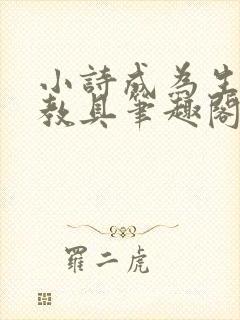 小詩成為生
教具筆趣閣
羅二虎